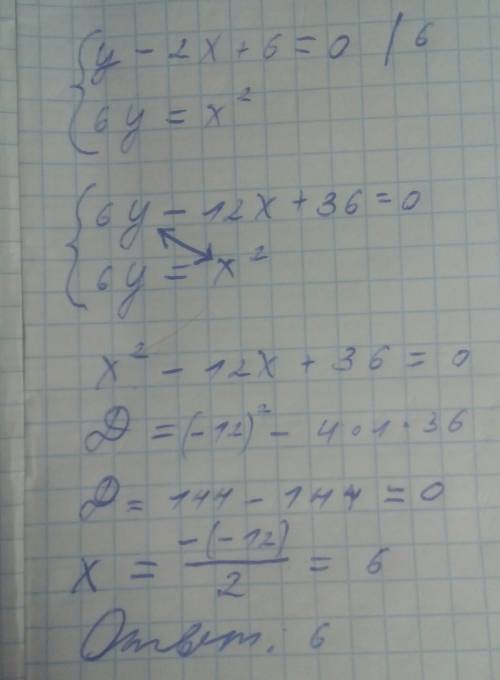 y - 2x + 6 = 0 / 6
6y = x²
6y - 12x + 36 = 0
6y = x²
x² - 12x + 36 = 0
D = (-12)² - 4·1·36
D = 144 - 144 = 0
x = -(-12)/2 = 6
Ответ: 6